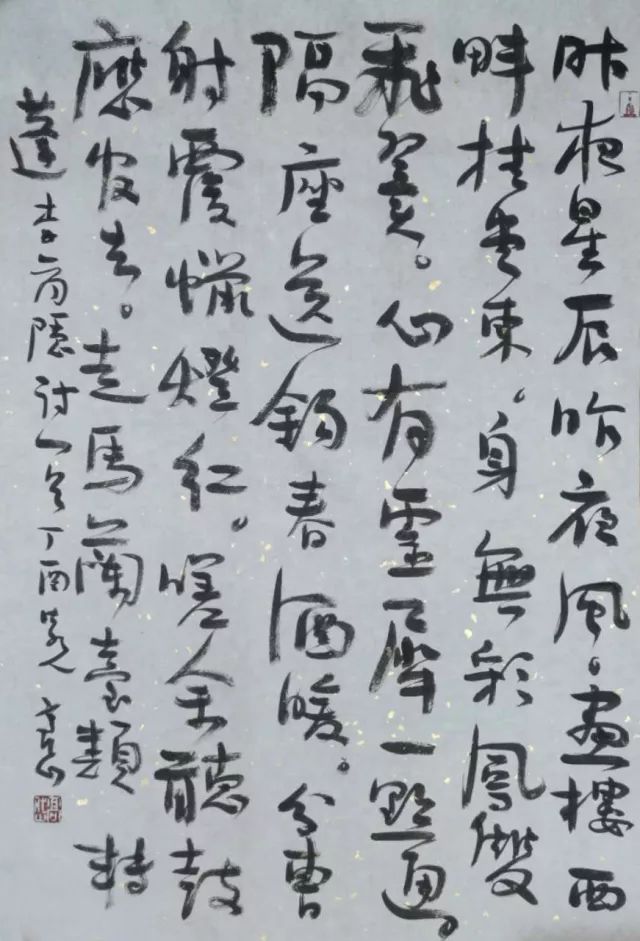 昨夜星辰昨夜風、畫樓西
畔桂堂東。身無彩鳳雙
飛翼。心有靈犀一點通。
隔座送鉤春酒暖。分曹
射覆蠟燈紅。嗟余聽鼓
應官去。走馬蘭臺類轉
蓬 李商隱詩一首 丁酉